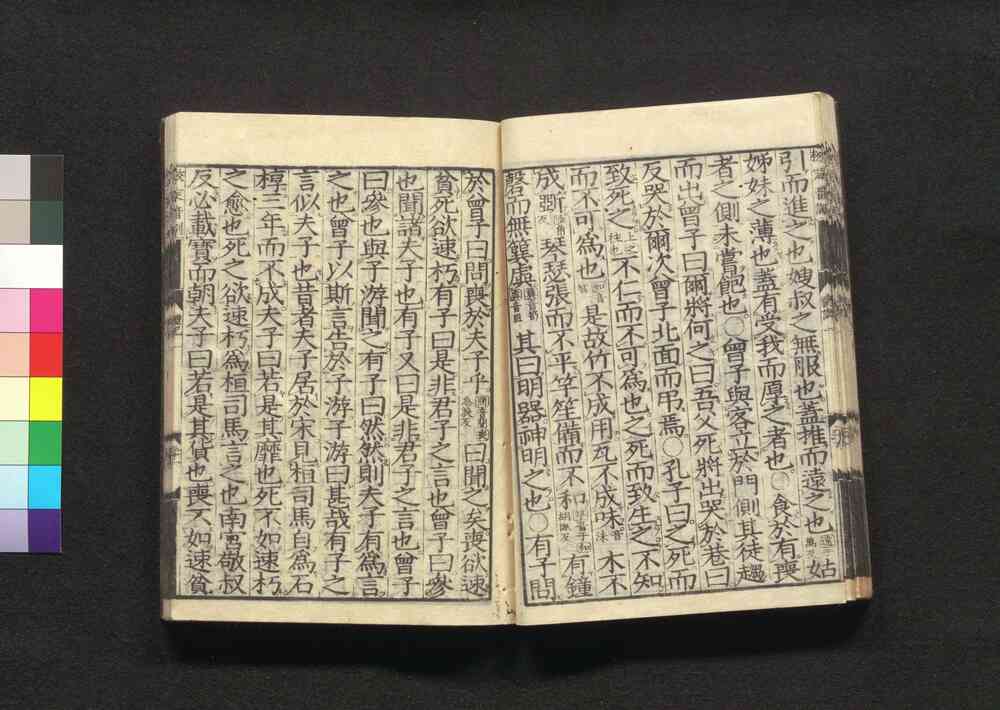 引而進之也嫂叔之無服也蓋推而遠之也姑
姊妹之薄也蓋有受我而厚之者也○食於有喪
者之側未嘗飽也○曾子與客立於門側其徒趨
而出曾子曰爾將何之曰吾父死將出哭於巷曰
反哭於爾次曾子北面而弔焉○孔子曰之死而
致死之不仁而不可為也之死而致生之不知
而不可為也是故竹不成用瓦不成味木不
成斲琴瑟張而不平竽笙備而不和有鐘
磬而無簨虡其曰明器神明之也○有子問
於曾子曰問喪於夫子乎曰聞之矣喪欲速
貧死欲速朽有子曰是非君子之言也曾子曰參
也聞諸夫子也有子又曰是非君子之言也曾子
曰參也與子游聞之有子曰然然則夫子有為言
之也曾子以斯言告於子游子游曰甚哉有子之
言似夫子也昔者夫子居於宋見桓司馬自為石
椁三年而不成夫子曰若是其靡也死不如速朽
之愈也死之欲速朽為桓司馬言之也南宮敬叔
反必載寶而朝夫子曰若是其貨也喪不如速貧